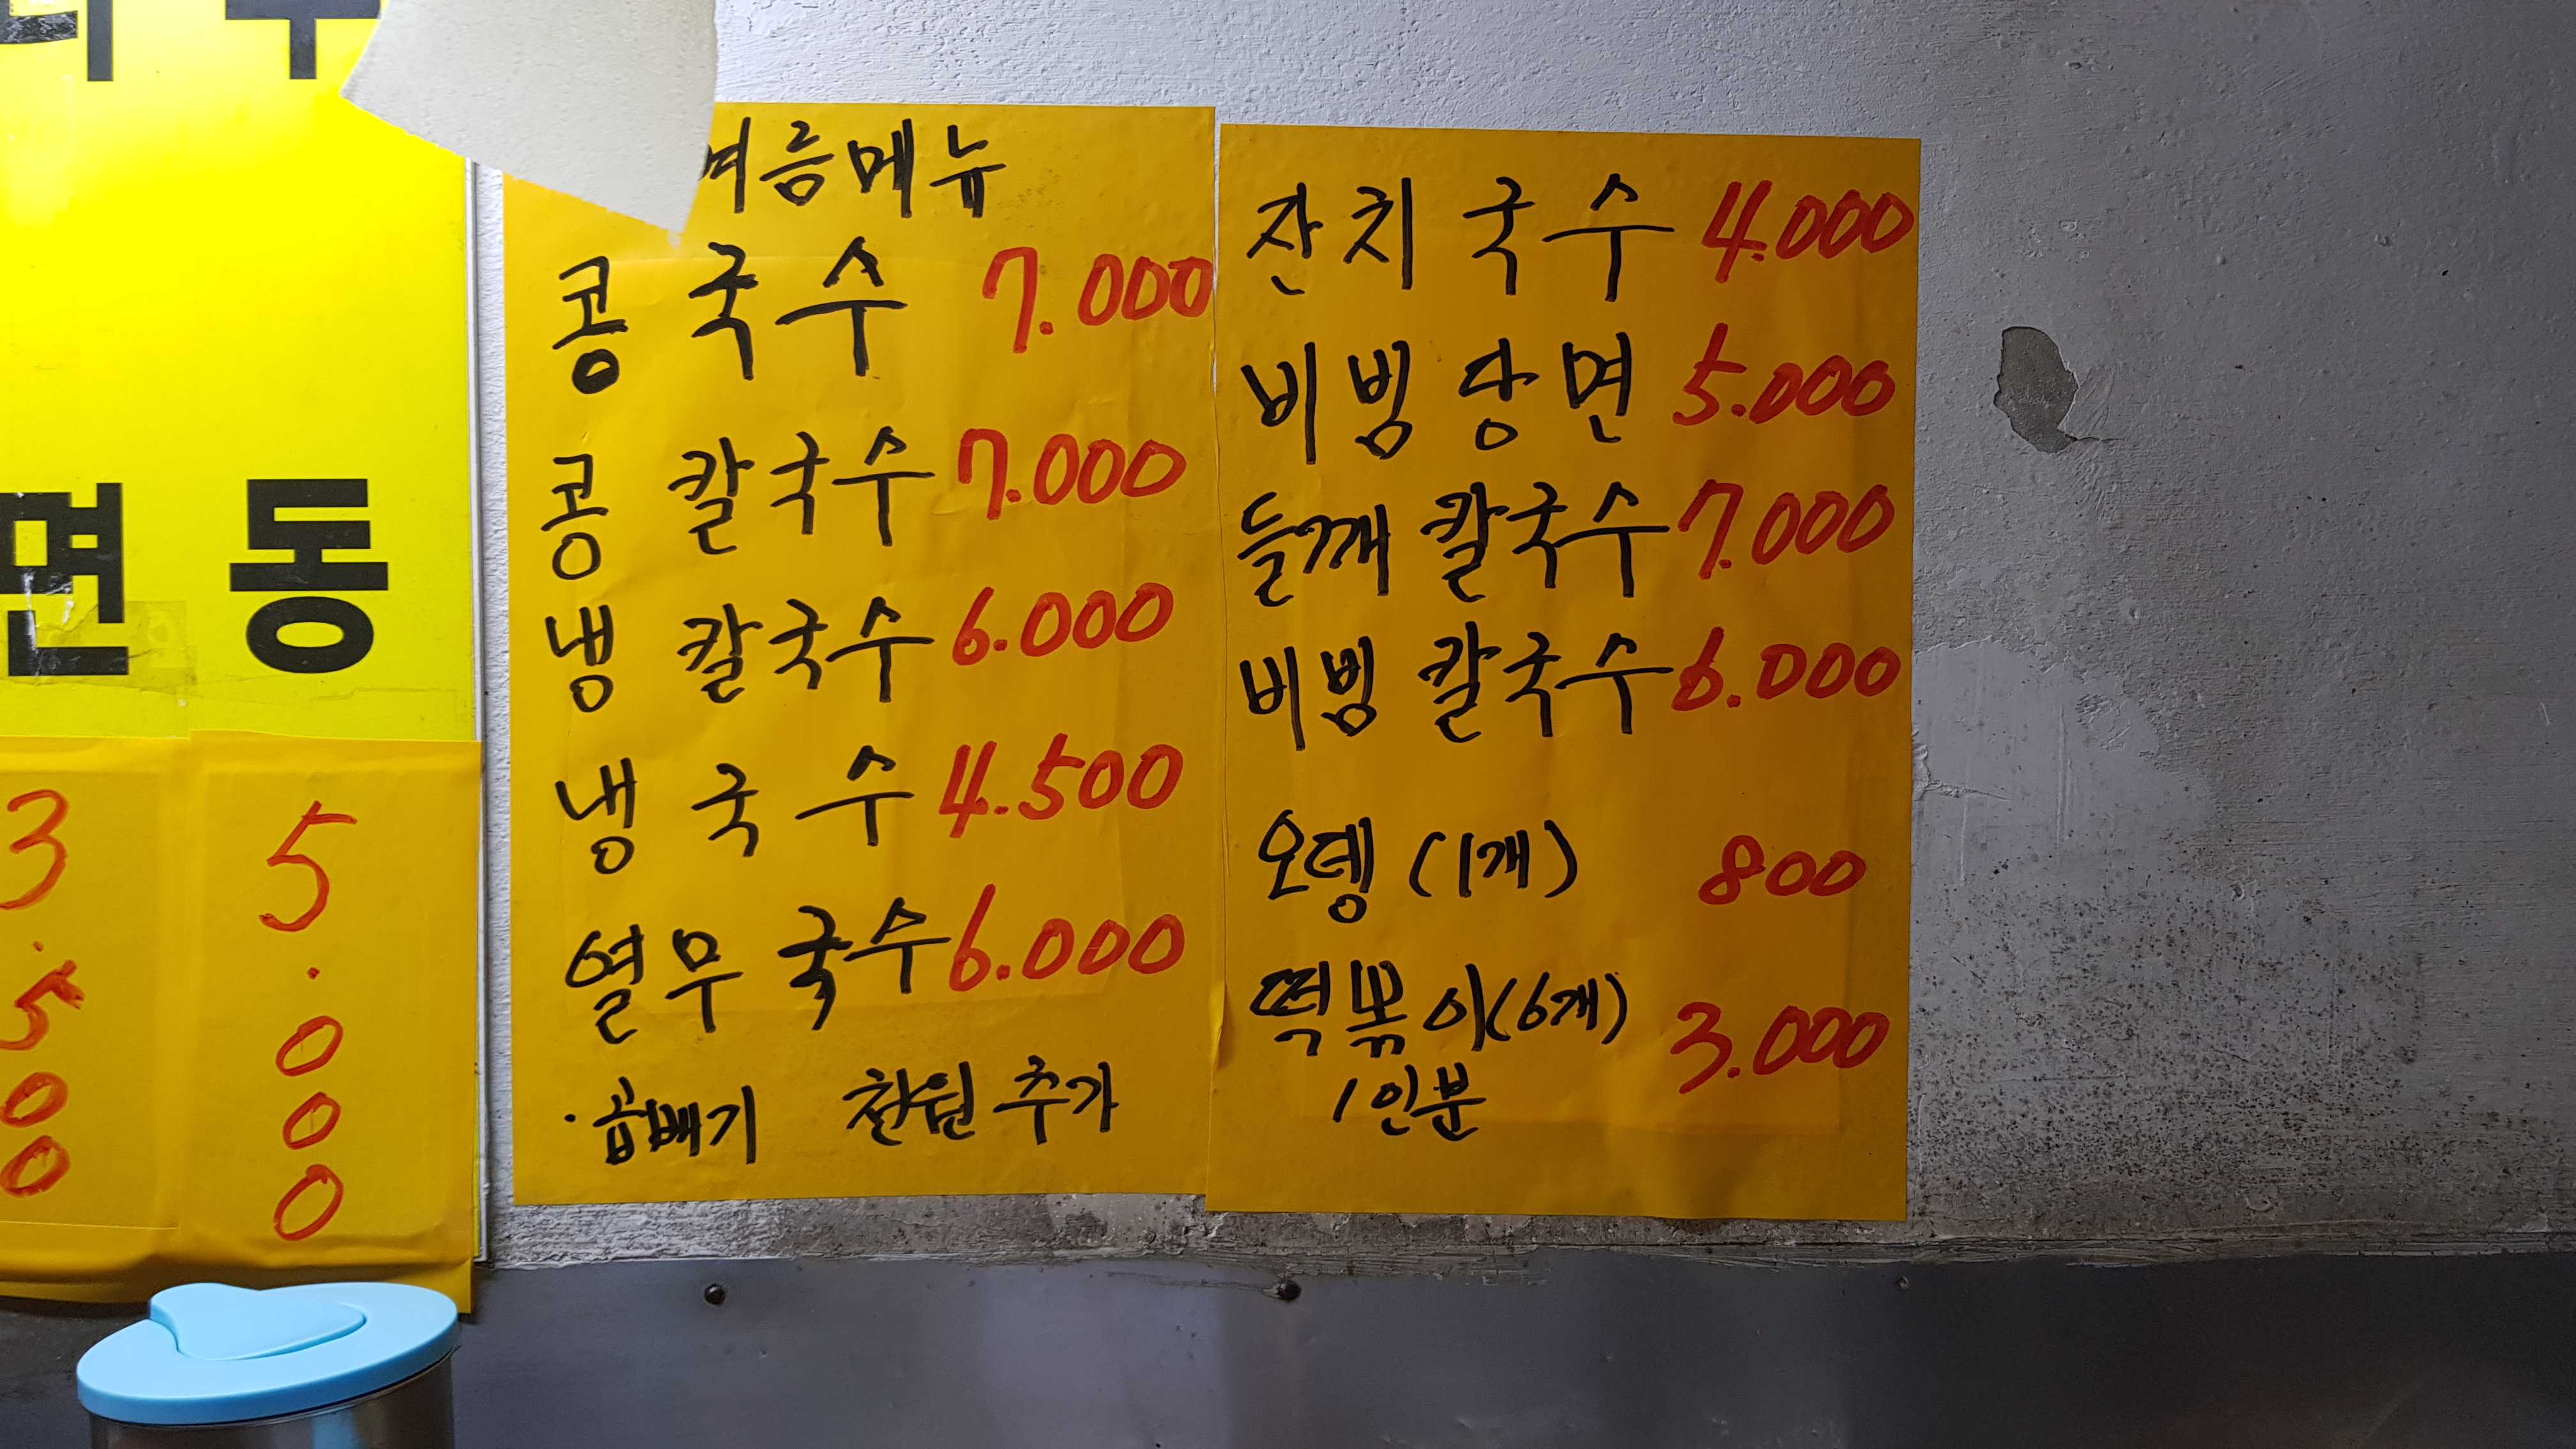 면 동
3.500 5.000
여름메뉴
콩 국수 7.000
콩 칼국수 7.000
냉 칼국수 6.000
냉 국수 4.500
열무 국수 6.000
·곱빼기 천원 추가
잔치 국수 4.000
비빔 당면 5.000
들깨 칼국수 7.000
비빔 칼국수 6.000
오뎅 (1개) 800
떡볶이(6개) 3.000
1인분